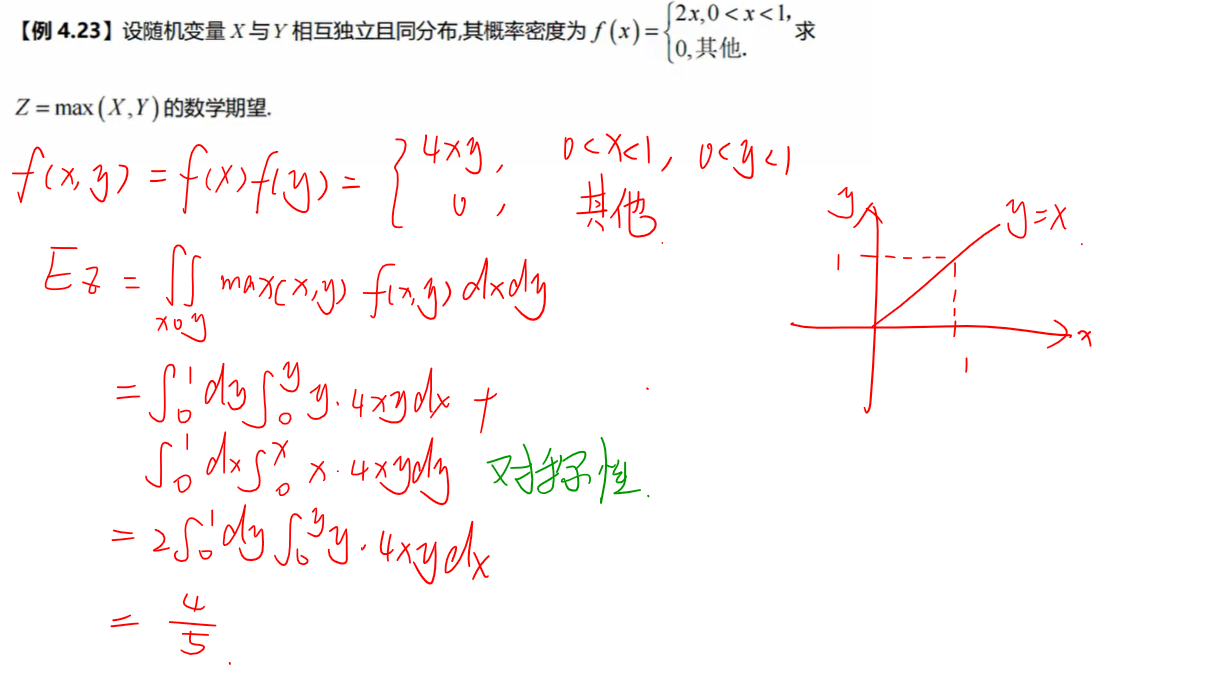 【例 4.23】设随机变量 X 与 Y 相互独立且同分布,其概率密度为 f(x)={2x,0<x<1, 0,其他. 求
Z=max(X,Y)的数学期望.
f(x,y) = f(x)f(y) = { 4xy, 0<x<1, 0<y<1
0, 其他.
y
y=x
1
x
1
Ez = ∬ max(x,y) f(x,y) dxdy
xoy
= ∫₀¹ dy ∫₀ʸ y·4xydx +
∫₀¹ dx ∫₀ˣ x·4xydy 对称性.
= 2∫₀¹ dy ∫₀ʸ y·4xydx
= 4/5.